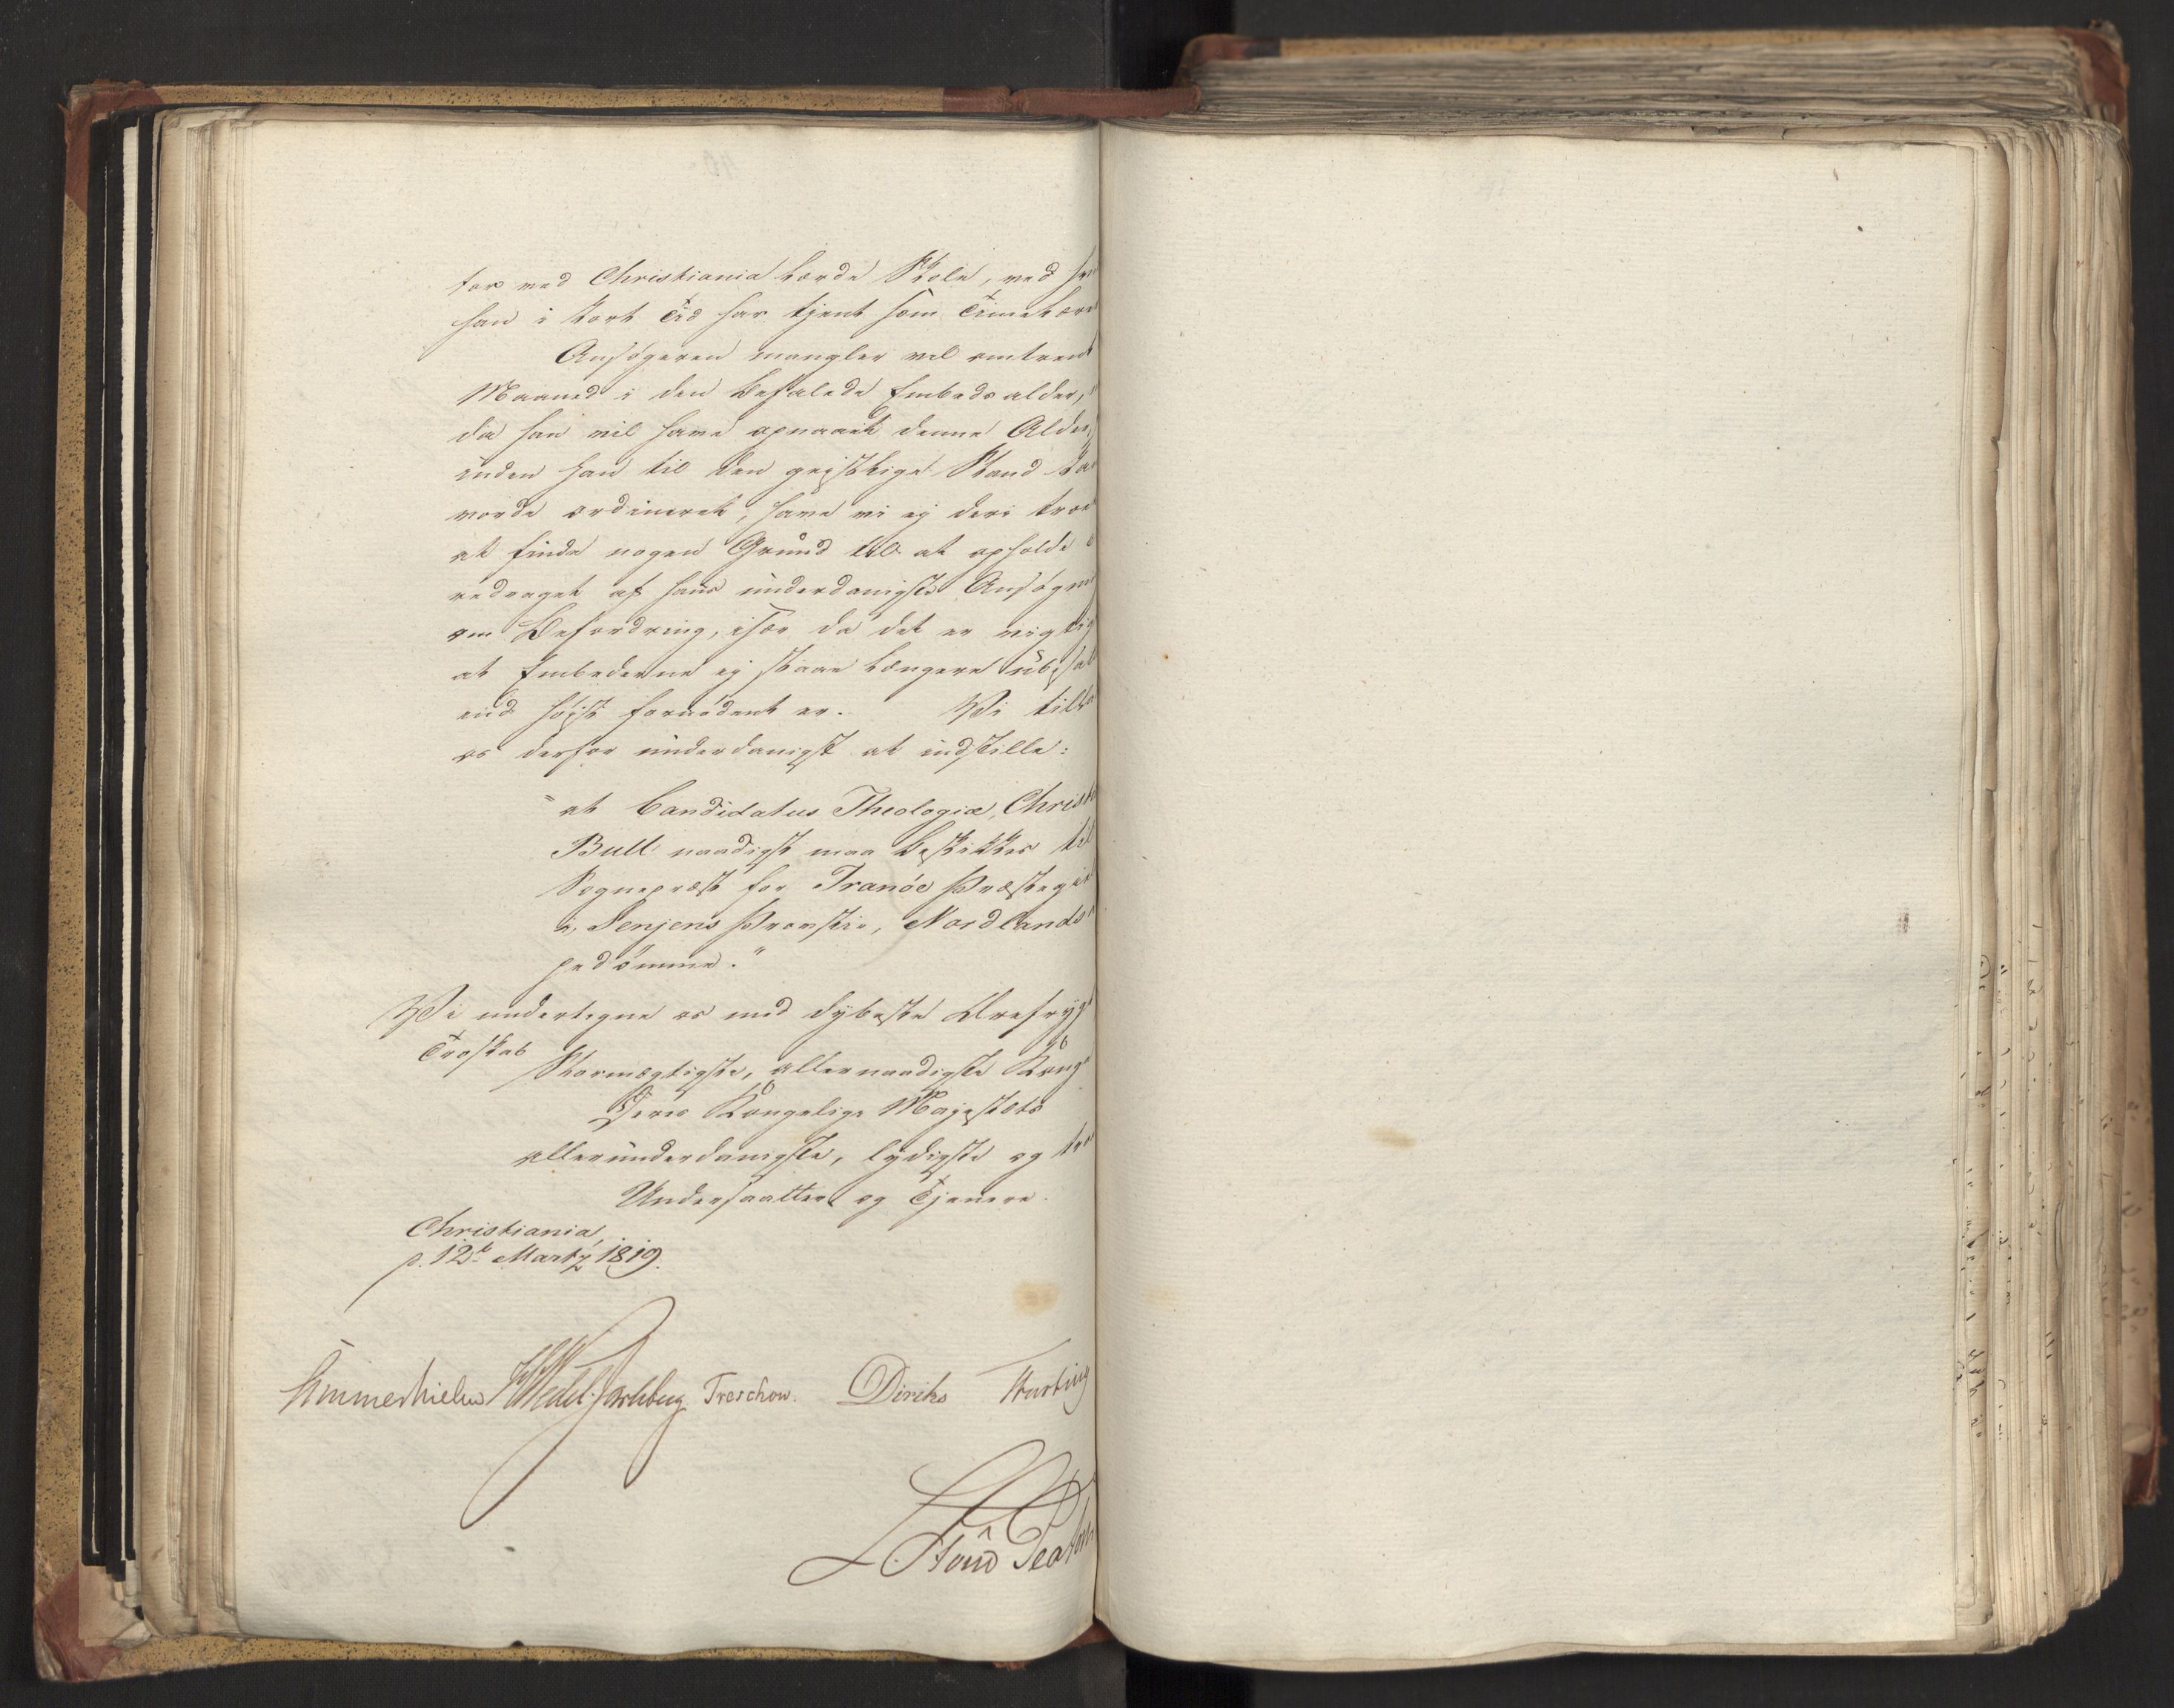 tor ved Christiania lærde Skole, ved
han i kort Tid har tjent som Timelære
Ansøgeren mangler vel omtrent
Maaned i den befalede Embedsalder,
da han vil have opnaaet denne Alder,
inden han til den geistlige Stand kan
vorde ordineret, have vi ej deri troe
at finde nogen Grund til at opholde
redraget af hans underdanigste Ansøgni
om Befordring, især da det er vigtig
at Embederne ej staae længere ube
end høist fornødent er. Vi tilla
os derfor underdanigst at indstille:
"at Candidatus Theologiæ, Christ
Bull naadigst maa beskikkes til
Sognepræst for Tranöe Præstegie
i Senjens Provstie, Nordlands
gedömme."
Vi undertegne os med dybeste Ærefrygt
Troskab
Stormægtigste, allernaadigste Konge
Deres Kongelige Majestæts
allerunderdanigste, lydigste og tro
Undersaatter og Tjenere.
Christiania,
p. 12te Martz 1819.
Sommerhielm HWedel Jarlsberg Treschow. Diriks Motzfeldt